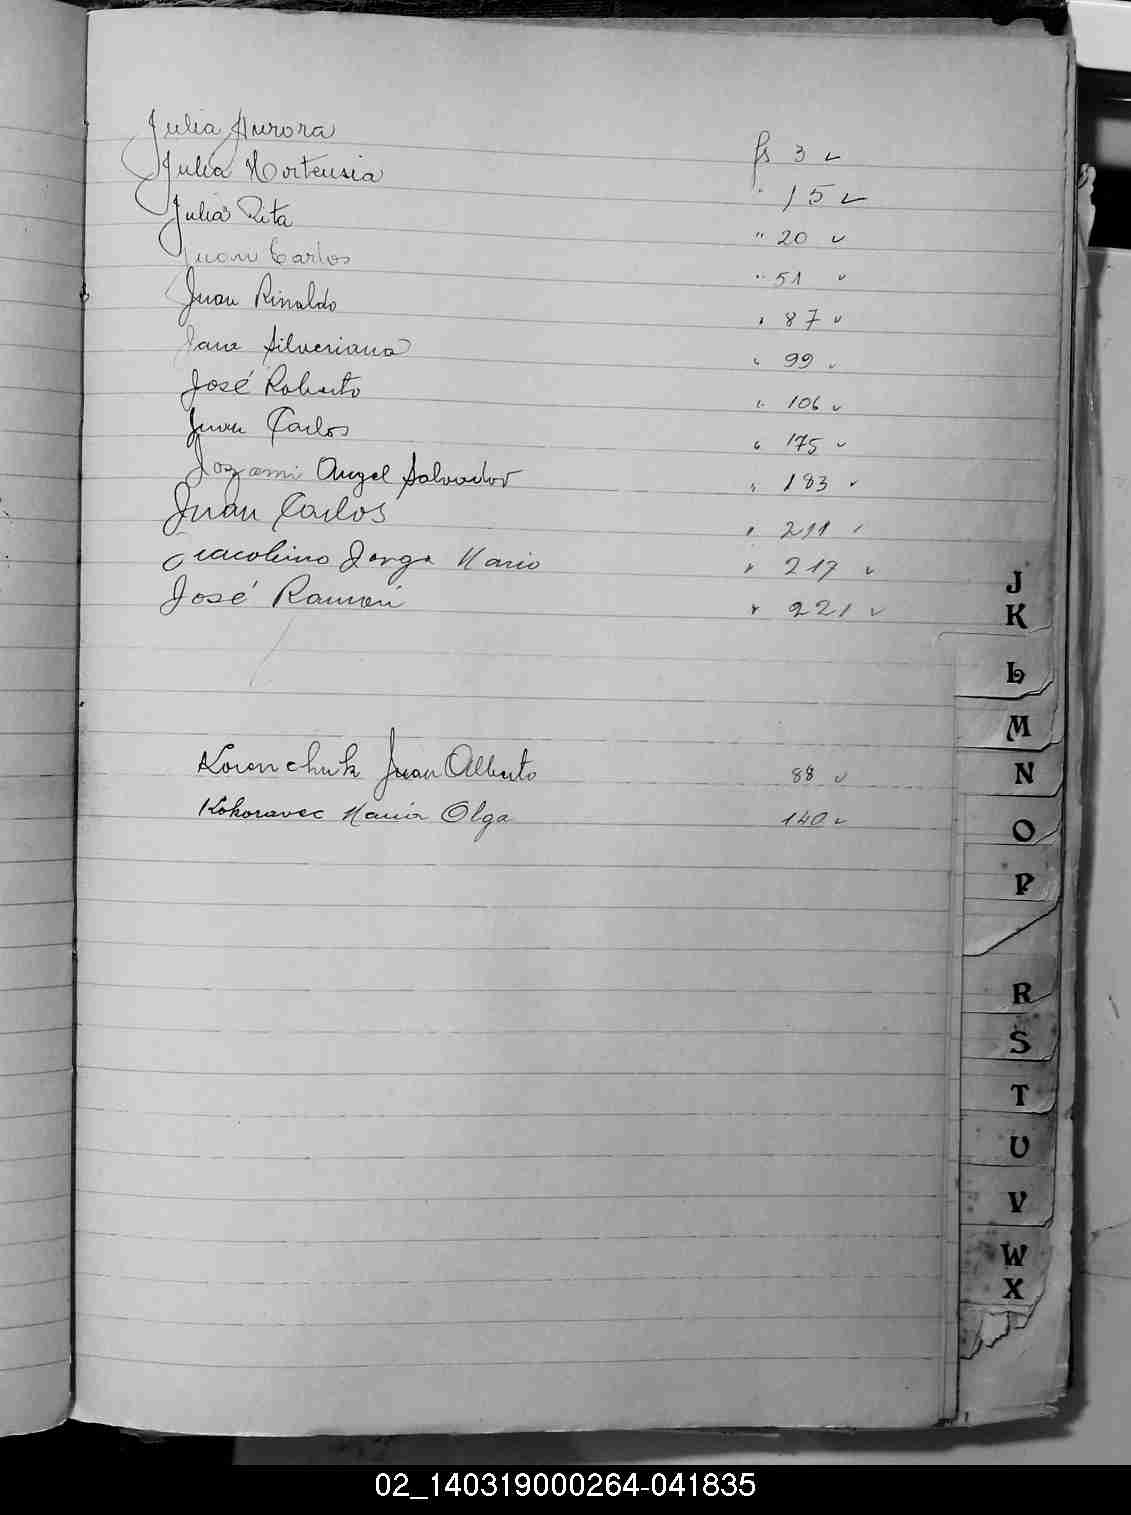 Julia Aurora fs 3 ✓
Julia Hortensia " 15 ✓
Julia Rita " 20 ✓
Juan Carlos " 51 ✓
Juan Rinaldo " 87 ✓
Silveriana " 99 ✓
José Roberto " 106 ✓
Juan Carlos " 175 ✓
Jozami Angel Salvador " 183 ✓
Juan Carlos " 211 ✓
Jorge Mario " 217 ✓
José Ramón " 221 ✓
Korenchuk Juan Alberto 88 ✓
Kokoravec Maria Olga 140 ✓
J
K
L
M
N
O
P
R
S
T
U
V
W
X
02_140319000264-041835